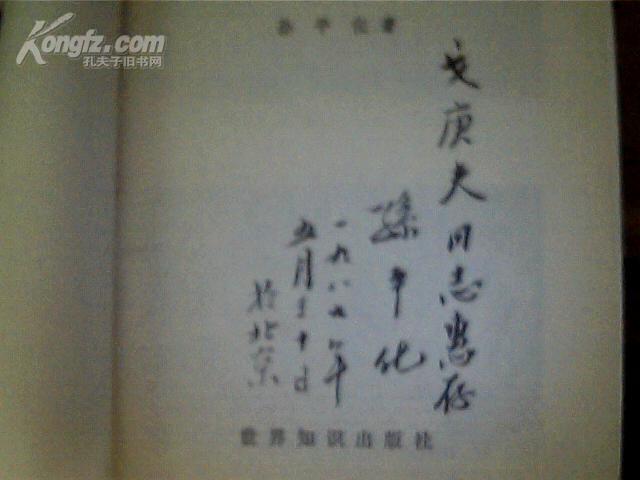 Kongfz.com
孔夫子旧书网
孙平化著
庚夫同志惠存
孙平化
一九八九年
五月三十日
於北京
世界知识出版社